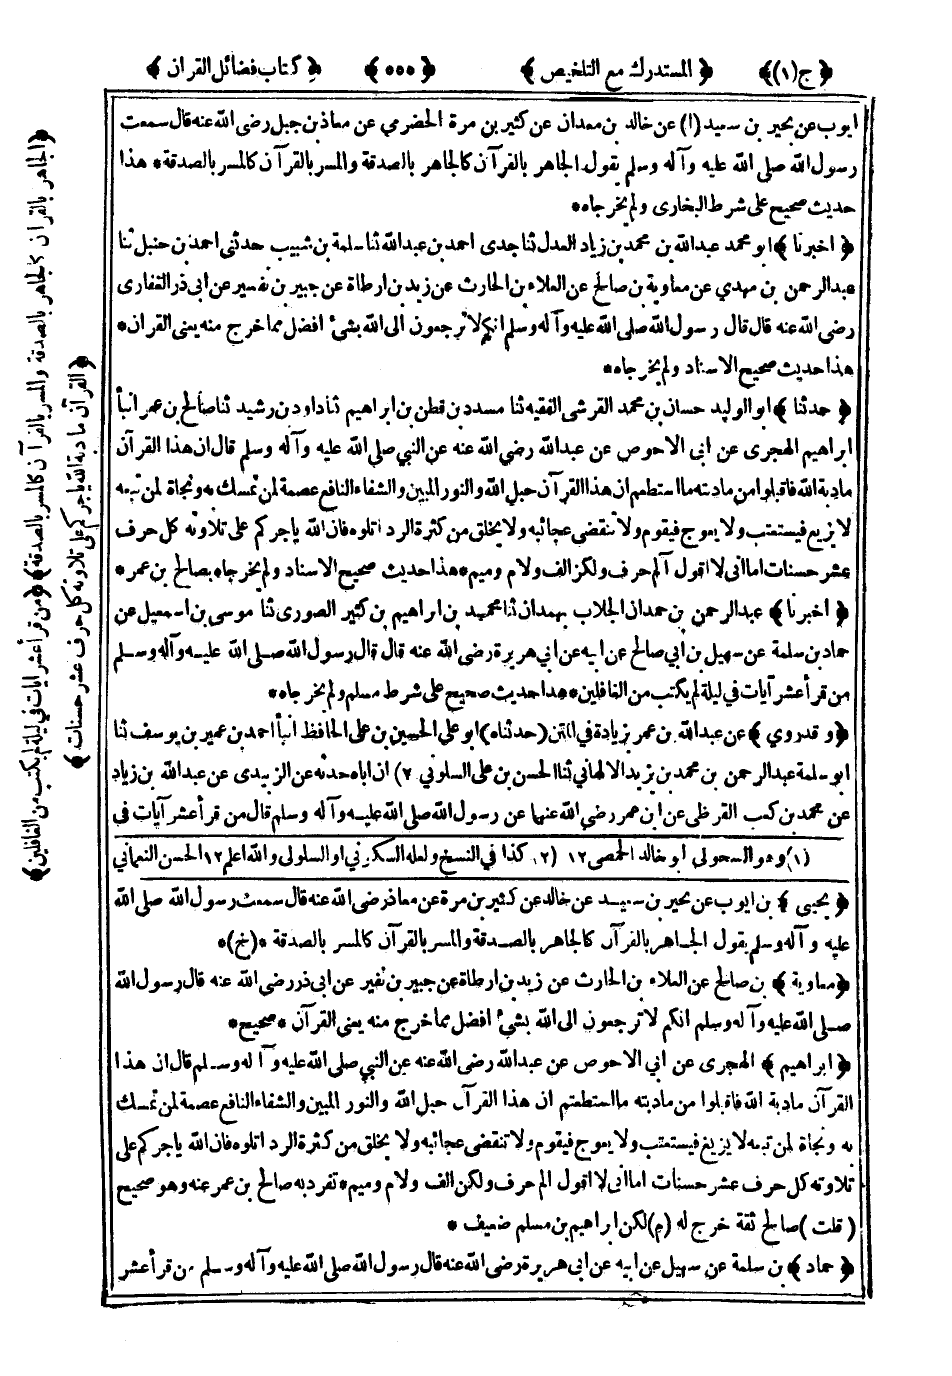 ﴿ ج (١) ﴾ ﴿ المستدرك مع التلخيص ﴾ ﴿ ٥٥٥ ﴾ ﴿ كتاب فضائل القران ﴾
ايوب عن بحير بن سعيد (١) عن خالد بن معدان عن كثير بن مرة الحضرمي عن معاذ بن جبل رضى الله عنه قال سمعت
رسول الله صلى الله عليه وآله وسلم يقول الجاهر بالقرآن كالجاهر بالصدقة والمسر بالقرآن كالمسر بالصدقة * هذا
حديث صحيح على شرط البخارى ولم يخرجاه *
﴿ اخبرنا ﴾ ابو محمد عبدالله بن محمد بن زياد العدل ثنا جدى احمد بن عبدالله ثنا سلمة بن شبيب حدثنى احمد بن حنبل ثنا
عبدالرحمن بن مهدي عن معاوية بن صالح عن العلاء بن الحارث عن زيد بن ارطاة عن جبير بن نفير عن ابى ذر الغفارى
رضى الله عنه قال قال رسول الله صلى الله عليه وآله وسلم انكم لا ترجعون الى الله بشئ افضل مما خرج منه يعنى القران *
هذا حديث صحيح الاسناد ولم يخرجاه *
﴿ حدثنا ﴾ ابو الوليد حسان بن محمد القرشى الفقيه ثنا مسدد بن قطن بن ابراهيم ثنا داود بن رشيد ثنا صالح بن عمر انبأ
ابراهيم الهجرى عن ابى الاحوص عن عبدالله رضى الله عنه عن النبي صلى الله عليه وآله وسلم قال ان هذا القرآن
مادبة الله فاقبلوا من مادبته ما استطعتم ان هذا القرآن حبل الله والنور المبين والشفاء النافع عصمة لمن تمسك به ونجاة لمن تبعه
لا يزيغ فيستعتب ولا يعوج فيقوم ولا تنقضى عجائبه ولا يخلق من كثرة الرد اتلوه فان الله ياجركم على تلاوته كل حرف
عشر حسنات اما انى لا اقول الم حرف ولكن الف ولام وميم * هذا حديث صحيح الاسناد ولم يخرجاه بصالح بن عمر *
﴿ اخبرنا ﴾ عبدالرحمن بن حمدان الجلاب بهمدان ثنا محمد بن ابراهيم بن كثير الصورى ثنا موسى بن اسمعيل عن
حماد بن سلمة عن سهيل بن ابي صالح عن ابيه عن ابي هريرة رضى الله عنه قال قال رسول الله صلى الله عليه وآله وسلم
من قرأ عشر آيات في ليلة لم يكتب من الغافلين * هذا حديث صحيح على شرط مسلم ولم يخرجاه *
﴿ وقد روي ﴾ عن عبدالله بن عمر زيادة في المتن (حدثناه) ابو علي الحسين بن على الحافظ انبأ احمد بن عمير بن يوسف ثنا
ابو سلمة عبدالرحمن بن محمد بن يزيد الالهاني ثنا الحسن بن على السلونى ٢) ان اباه حدثه عن الزبيدى عن عبدالله بن زياد
عن محمد بن كعب القرظى عن ابن عمر رضى الله عنهما عن رسول الله صلى الله عليه وآله وسلم قال من قرأ عشر آيات في
(١) وهو السحولى ابو خالد الحمصى ١٢ (٢) كذا في النسخ ولعله السكونى او السلولى والله اعلم ١٢ الحسن النعمانى
﴿ يحيى ﴾ بن ايوب عن بحير بن سعيد عن خالد عن كثير بن مرة عن معاذ رضى الله عنه قال سمعت رسول الله صلى الله
عليه وآله وسلم يقول الجاهر بالقرآن كالجاهر بالصدقة والمسر بالقرآن كالمسر بالصدقة * (خ) *
﴿ معاوية ﴾ بن صالح عن العلاء بن الحارث عن زيد بن ارطاة عن جبير بن نفير عن ابى ذر رضى الله عنه قال رسول الله
صلى الله عليه وآله وسلم انكم لا ترجعون الى الله بشئ افضل مما خرج منه يعنى القرآن * صحيح *
﴿ ابراهيم ﴾ الهجرى عن ابي الاحوص عن عبدالله رضى الله عنه عن النبي صلى الله عليه وآله وسلم قال ان هذا
القرآن مادبة الله فاقبلوا من مادبته ما استطعتم ان هذا القرآن حبل الله والنور المبين والشفاء النافع عصمة لمن تمسك
به ونجاة لمن تبعه لا يزيغ فيستعتب ولا يعوج فيقوم ولا تنقضى عجائبه ولا يخلق من كثرة الرد اتلوه فان الله ياجركم على
تلاوته كل حرف عشر حسنات اما انى لا اقول الم حرف ولكن الف ولام وميم * تفرد به صالح بن عمر عنه وهو صحيح
(قلت) صالح ثقة خرج له (م) لكن ابراهيم بن مسلم ضعيف *
﴿ حماد ﴾ بن سلمة عن سهيل عن ابيه عن ابى هريرة رضى الله عنه قال رسول الله صلى الله عليه وآله وسلم من قرأ عشر
﴿ الجاهر بالقران كالجاهر بالصدقة والمسر بالقرآن كالمسر بالصدقة ﴾ ﴿ من قرأ عشر ايات في ليلة لم يكتب من الغافلين ﴾
﴿ القرآن مادبة الله ياجركم على تلاوته كل حرف عشر حسنات ﴾